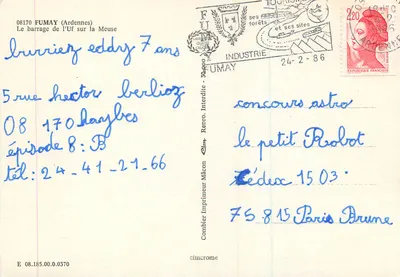 08170 FUMAY (Ardennes)
Le barrage de l'Uf sur la Meuse
burriez eddy 7 ans
5 rue hector berlioz
08 170 haybes
épisode 8 : B
tél : 24-41-21-66
E 08.185.00.0.0370
Combier Imprimeur Mâcon
Repro. Interdite - Macon
cim
cimcrome
FUMAY
TOURISME
ses forêts
et ses sites
INDUSTRIE
FUMAY
24-2-86
2,20
concours astro
le petit Robot
Cédex 1503
75 815 Paris Brune